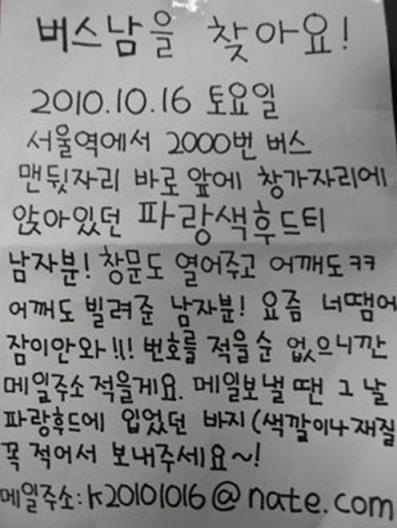 버스남을 찾아요!
2010.10.16 토요일
서울역에서 2000번 버스
맨뒷자리 바로 앞에 창가자리에
앉아있던 파랑색후드티
남자분! 창문도 열어주고 어깨도ㅋㅋ
어깨도 빌려준 남자분! 요즘 너땜어
잠이안와!!! 번호를 적을순 없으니깐
메일주소 적을게요. 메일보낼 땐 그 날
파랑후드에 입었던 바지(색깔이나 재질
꼭 적어서 보내주세요~!
메일주소:k20101016@nate.com